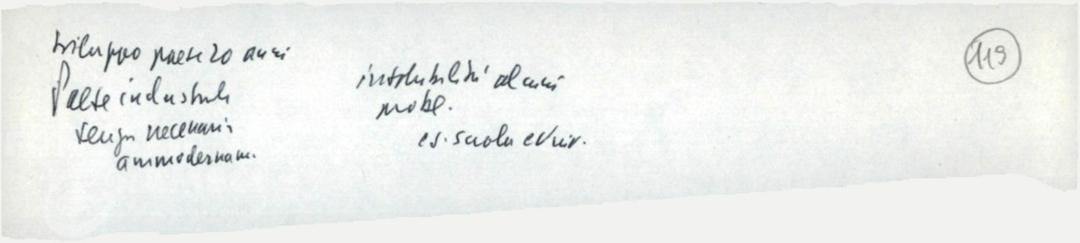 sviluppo paese 20 anni
Paese industriale
senza necessario
ammodernam.
insolubilità alcuni
probl.
es. scuola e Univ.
119